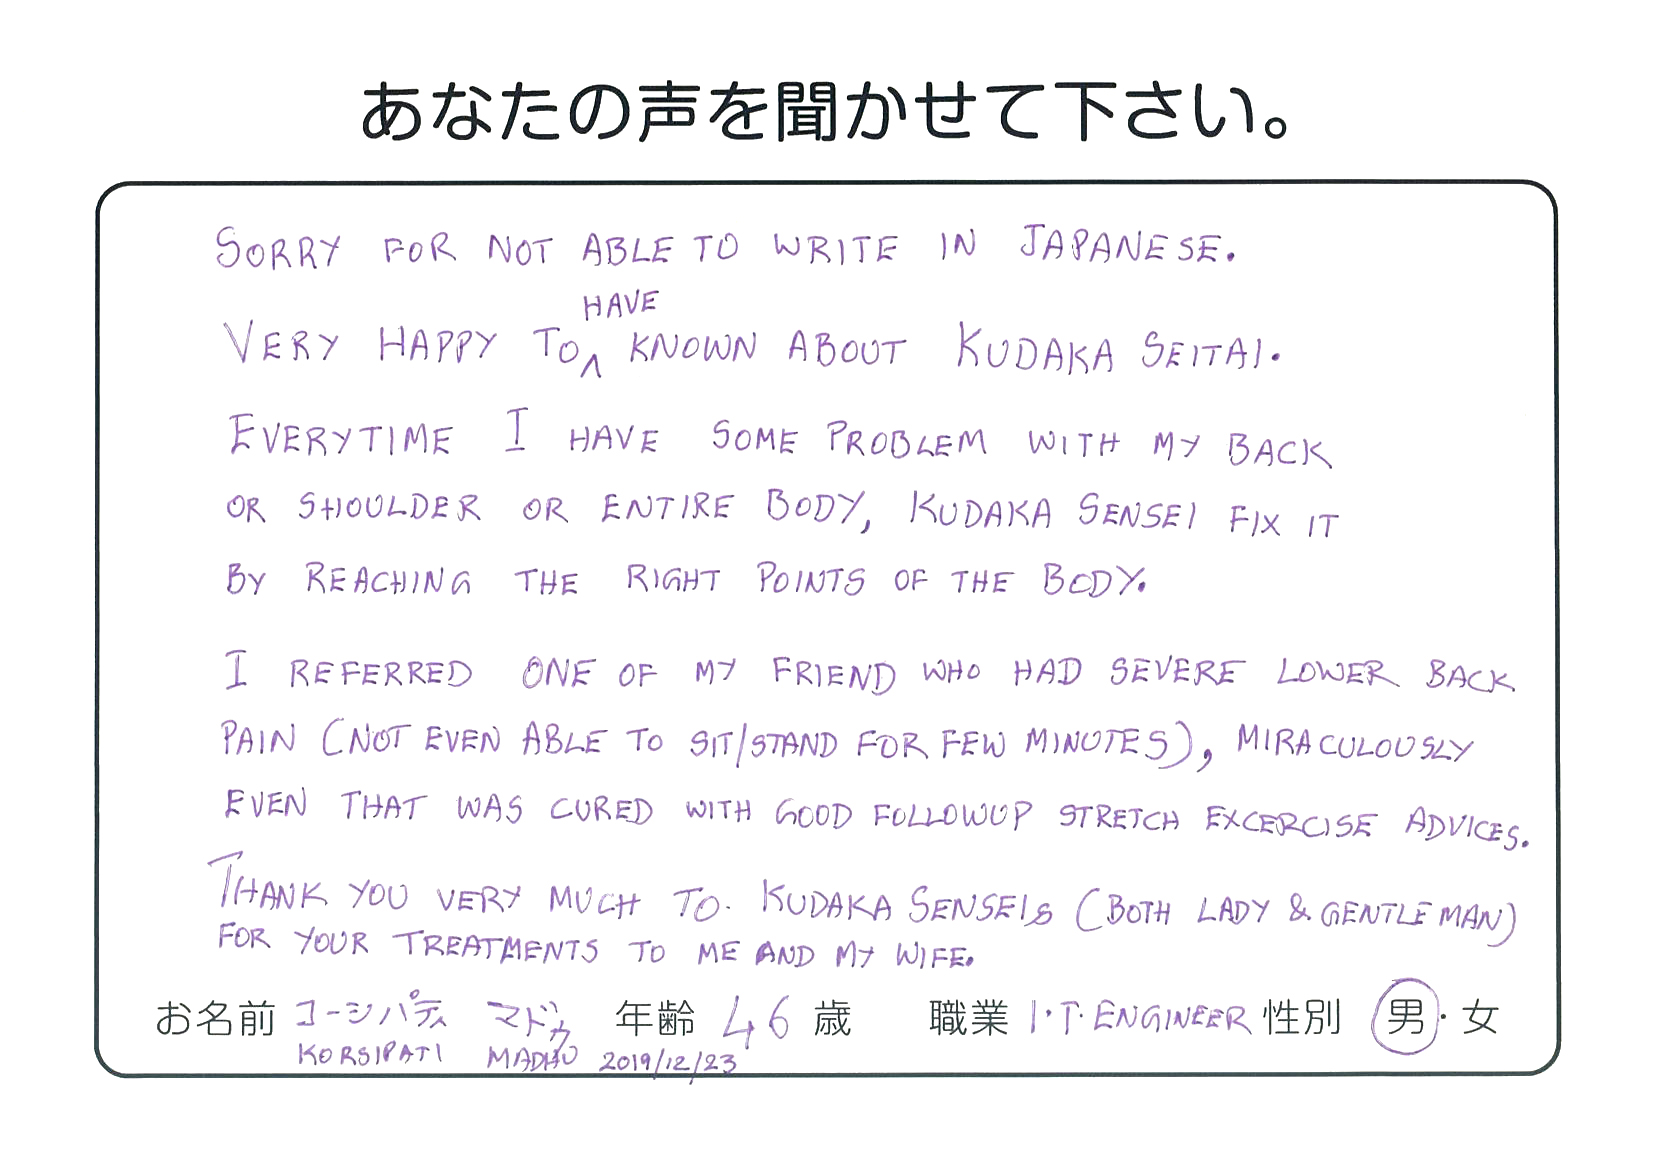 あなたの声を聞かせて下さい。
SORRY FOR NOT ABLE TO WRITE IN JAPANESE.
VERY HAPPY TO HAVE KNOWN ABOUT KUDAKA SEITAI.
EVERYTIME I HAVE SOME PROBLEM WITH MY BACK
OR SHOULDER OR ENTIRE BODY, KUDAKA SENSEI FIX IT
BY REACHING THE RIGHT POINTS OF THE BODY.
I REFERRED ONE OF MY FRIEND WHO HAD SEVERE LOWER BACK
PAIN (NOT EVEN ABLE TO SIT/STAND FOR FEW MINUTES), MIRACULOUSLY
EVEN THAT WAS CURED WITH GOOD FOLLOWUP STRETCH EXCERCISE ADVICES.
THANK YOU VERY MUCH TO. KUDAKA SENSEIS (BOTH LADY & GENTLEMAN)
FOR YOUR TREATMENTS TO ME AND MY WIFE.
お名前 コーシパティ マドゥ 年齢 46 歳 職業 I.T. ENGINEER 性別 男・女
KORSIPATI MADHU 2019/12/23